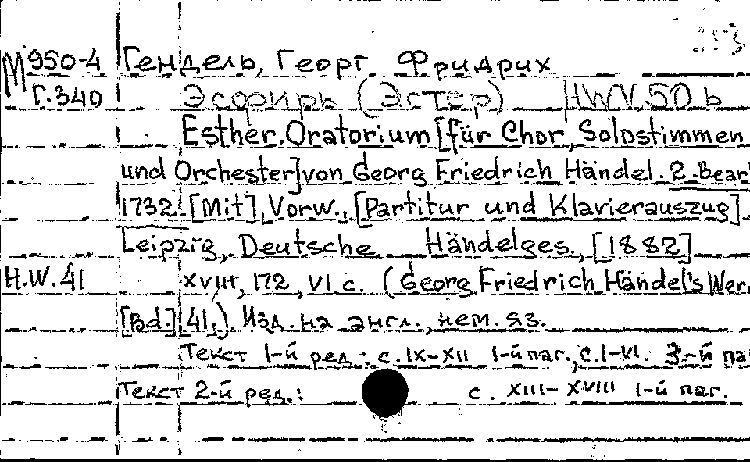 М950-4 Гендель, Георг Фридрих
Г.340 Эсфирь (Эстер) HWV 50 b
Esther. Oratorium [für Chor, Solostimmen
und Orchester] von Georg Friedrich Händel. 2. Bear
1732. [Mit] Vorw., [Partitur und Klavierauszug].
Leipzig, Deutsche Händelges., [1882]
H.W. 41 XVIII, 172, VI с. (Georg Friedrich Händel's Wer
[Bd.] 41.). Изд. на англ., нем. яз.
Текст 1-й ред.: с. IX-XII 1-й паг., с. I-VI. 3-й па
Текст 2-й ред.: с. XIII-XVIII 1-й паг.